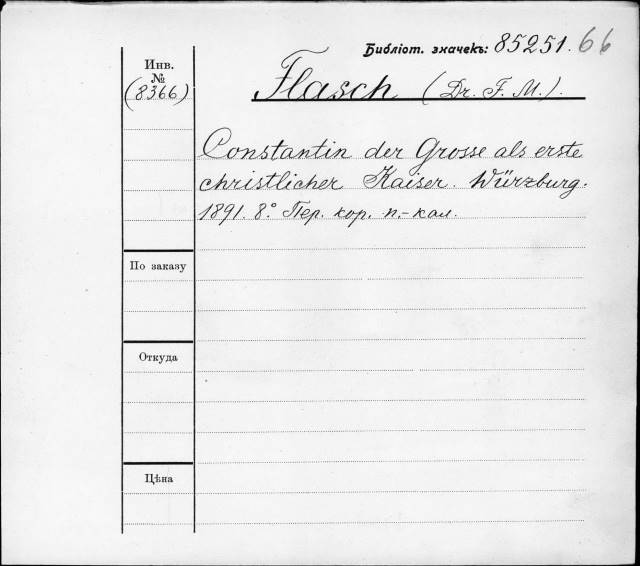 Библіот. значекъ: 85251.66
Инв.
№
(8366)
Flasch (Dr. F. M.).
Constantin der Grosse als erste
christlicher Kaiser. Würzburg.
1891. 8° Пер. кор. п.-кал.
По заказу
Откуда
Цѣна